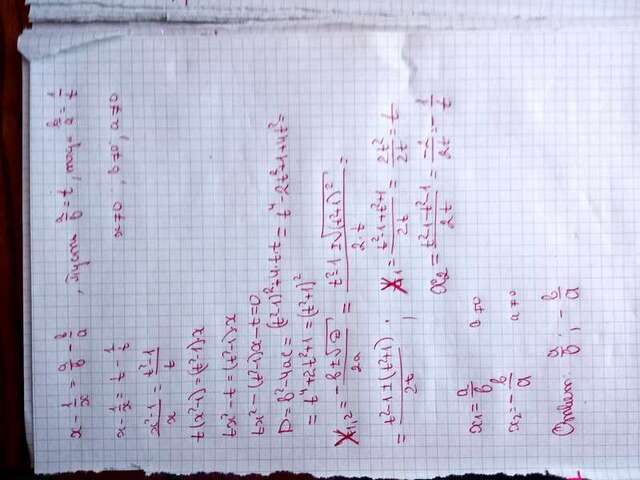 x - 1/x = a/b - b/a , Пусть a/b = t, тогда b/a = 1/t
x - 1/x = t - 1/t x ≠ 0, b ≠ 0, a ≠ 0
(x²-1)/x = (t²-1)/t
t(x²-1) = (t²-1)·x
tx² - t = (t²-1)·x
tx² - (t²-1)x - t = 0
D = b² - 4ac = (t²-1)² + 4·t·t = t⁴ - 2t² + 1 + 4t² =
= t⁴ + 2t² + 1 = (t²+1)²
X₁,₂ = (-b ± √D)/2a = (t²-1 ± √(t²+1)²)/(2·t) =
= (t²-1 ± (t²+1))/2t ; X₁ = (t²-1+t²+1)/2t = 2t²/2t = t
x₂ = (t²-1-t²-1)/2t = -2/2t = -1/t
x₁ = a/b b ≠ 0
x₂ = -b/a a ≠ 0
Ответ: a/b ; -b/a